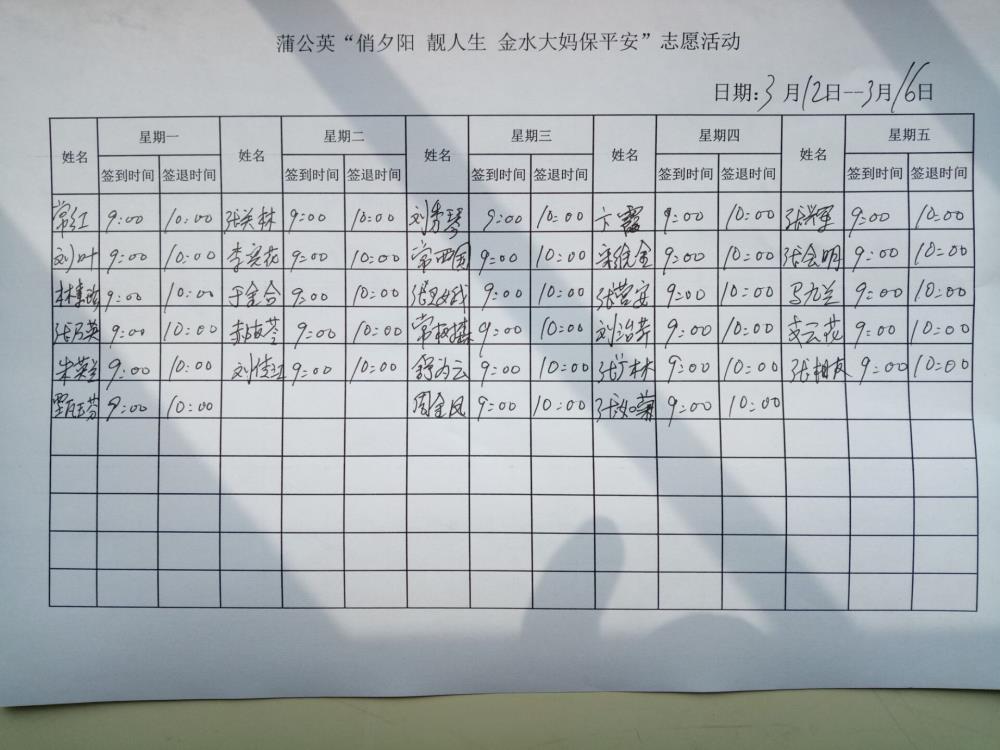 蒲公英“俏夕阳 靓人生 金水大妈保平安”志愿活动
日期:3月12日--3月16日
姓名 星期一 姓名 星期二 姓名 星期三 姓名 星期四 姓名 星期五
签到时间 签退时间 签到时间 签退时间 签到时间 签退时间 签到时间 签退时间 签到时间 签退时间
常红 9:00 10:00 张关林 9:00 10:00 刘秀琴 9:00 10:00 卞霞 9:00 10:00 9:00 10:00
刘叶 9:00 10:00 9:00 10:00 常西国 9:00 10:00 宋俊金 9:00 10:00 张会明 9:00 10:00
9:00 10:00 于金合 9:00 10:00 9:00 10:00 张营安 9:00 10:00 马九兰 9:00 10:00
张巧英 9:00 10:00 9:00 10:00 9:00 10:00 刘治芹 9:00 10:00 支云花 9:00 10:00
朱英兰 9:00 10:00 刘佳红 9:00 10:00 舒为云 9:00 10:00 张广林 9:00 10:00 张相友 9:00 10:00
甄玉芬 9:00 10:00 周金凤 9:00 10:00 张如菊 9:00 10:00